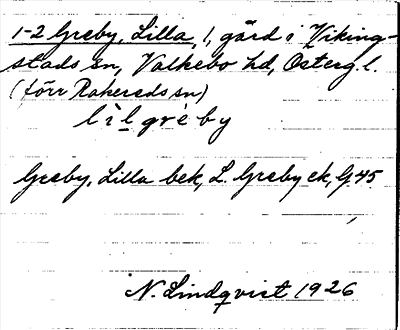 1-2 Greby, Lilla, 1, gård i Viking-
stads sn, Valkebo hd, Österg.l.
(förr Rakereds sn)
lìlgrèby
Greby, Lilla bek, L. Greby ek, G 45
N. Lindqvist 1926